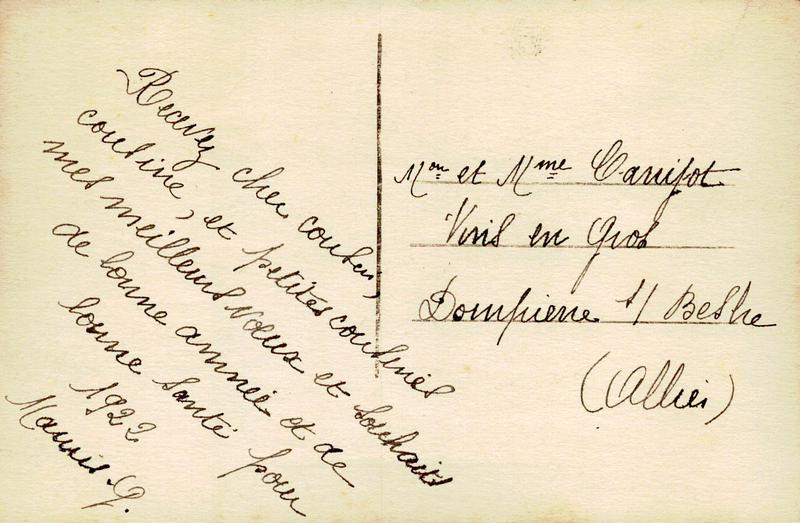 Recevez cher cousin,
cousine, et petites cousines
mes meilleurs vœux et souhaits
de bonne année et de
bonne santé pour
1922
Maurice G.
Mon et Mme
Vins en Gros
Dompierre s/ Besbre
(Allier)